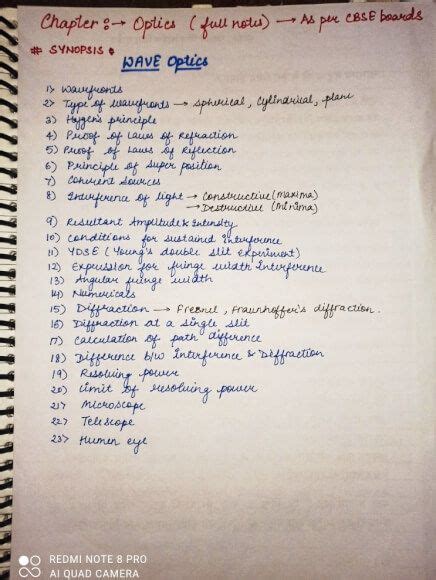 Chapter :→ Optics ( full notes) → As per CBSE boards
# SYNOPSIS :
WAVE Optics
1> Wavefronts
2> Type of wavefronts → spherical, cylindrical, plane
3) Huygen's principle
4) Proof of Laws of Refraction
5) Proof of Laws of Reflection
6) Principle of super position
7) Coherent Sources
8) Interference of light → Constructive (maxima)
→ Destructive (minima)
9) Resultant Amplitude & Intensity
10) conditions for sustained interference
11) YDSE ( Young's double slit experiment)
12) Expression for fringe width Interference
13) Angular fringe width
14) Numericals
15) Diffraction → Fresnel, Fraunhoffer's diffraction.
16) Diffraction at a single slit
17) Calculation of path difference
18) Difference b/w Interference & Diffraction
19) Resolving power
20) Limit of resolving power
21> Microscope
22> Telescope
23> Human eye
REDMI NOTE 8 PRO
AI QUAD CAMERA